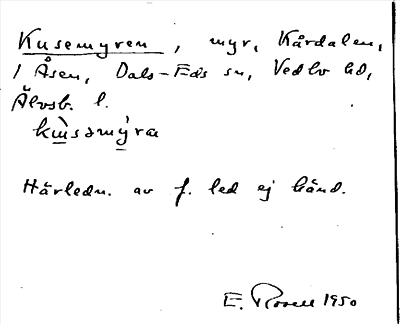 Kusemyren, myr, Kårdalen,
1 Åsen, Dals-Eds sn, Vedbo hd,
Älvsb. l.
kùsəmýra
Härledn. av f. led ej känd.
E. Rosell 1950